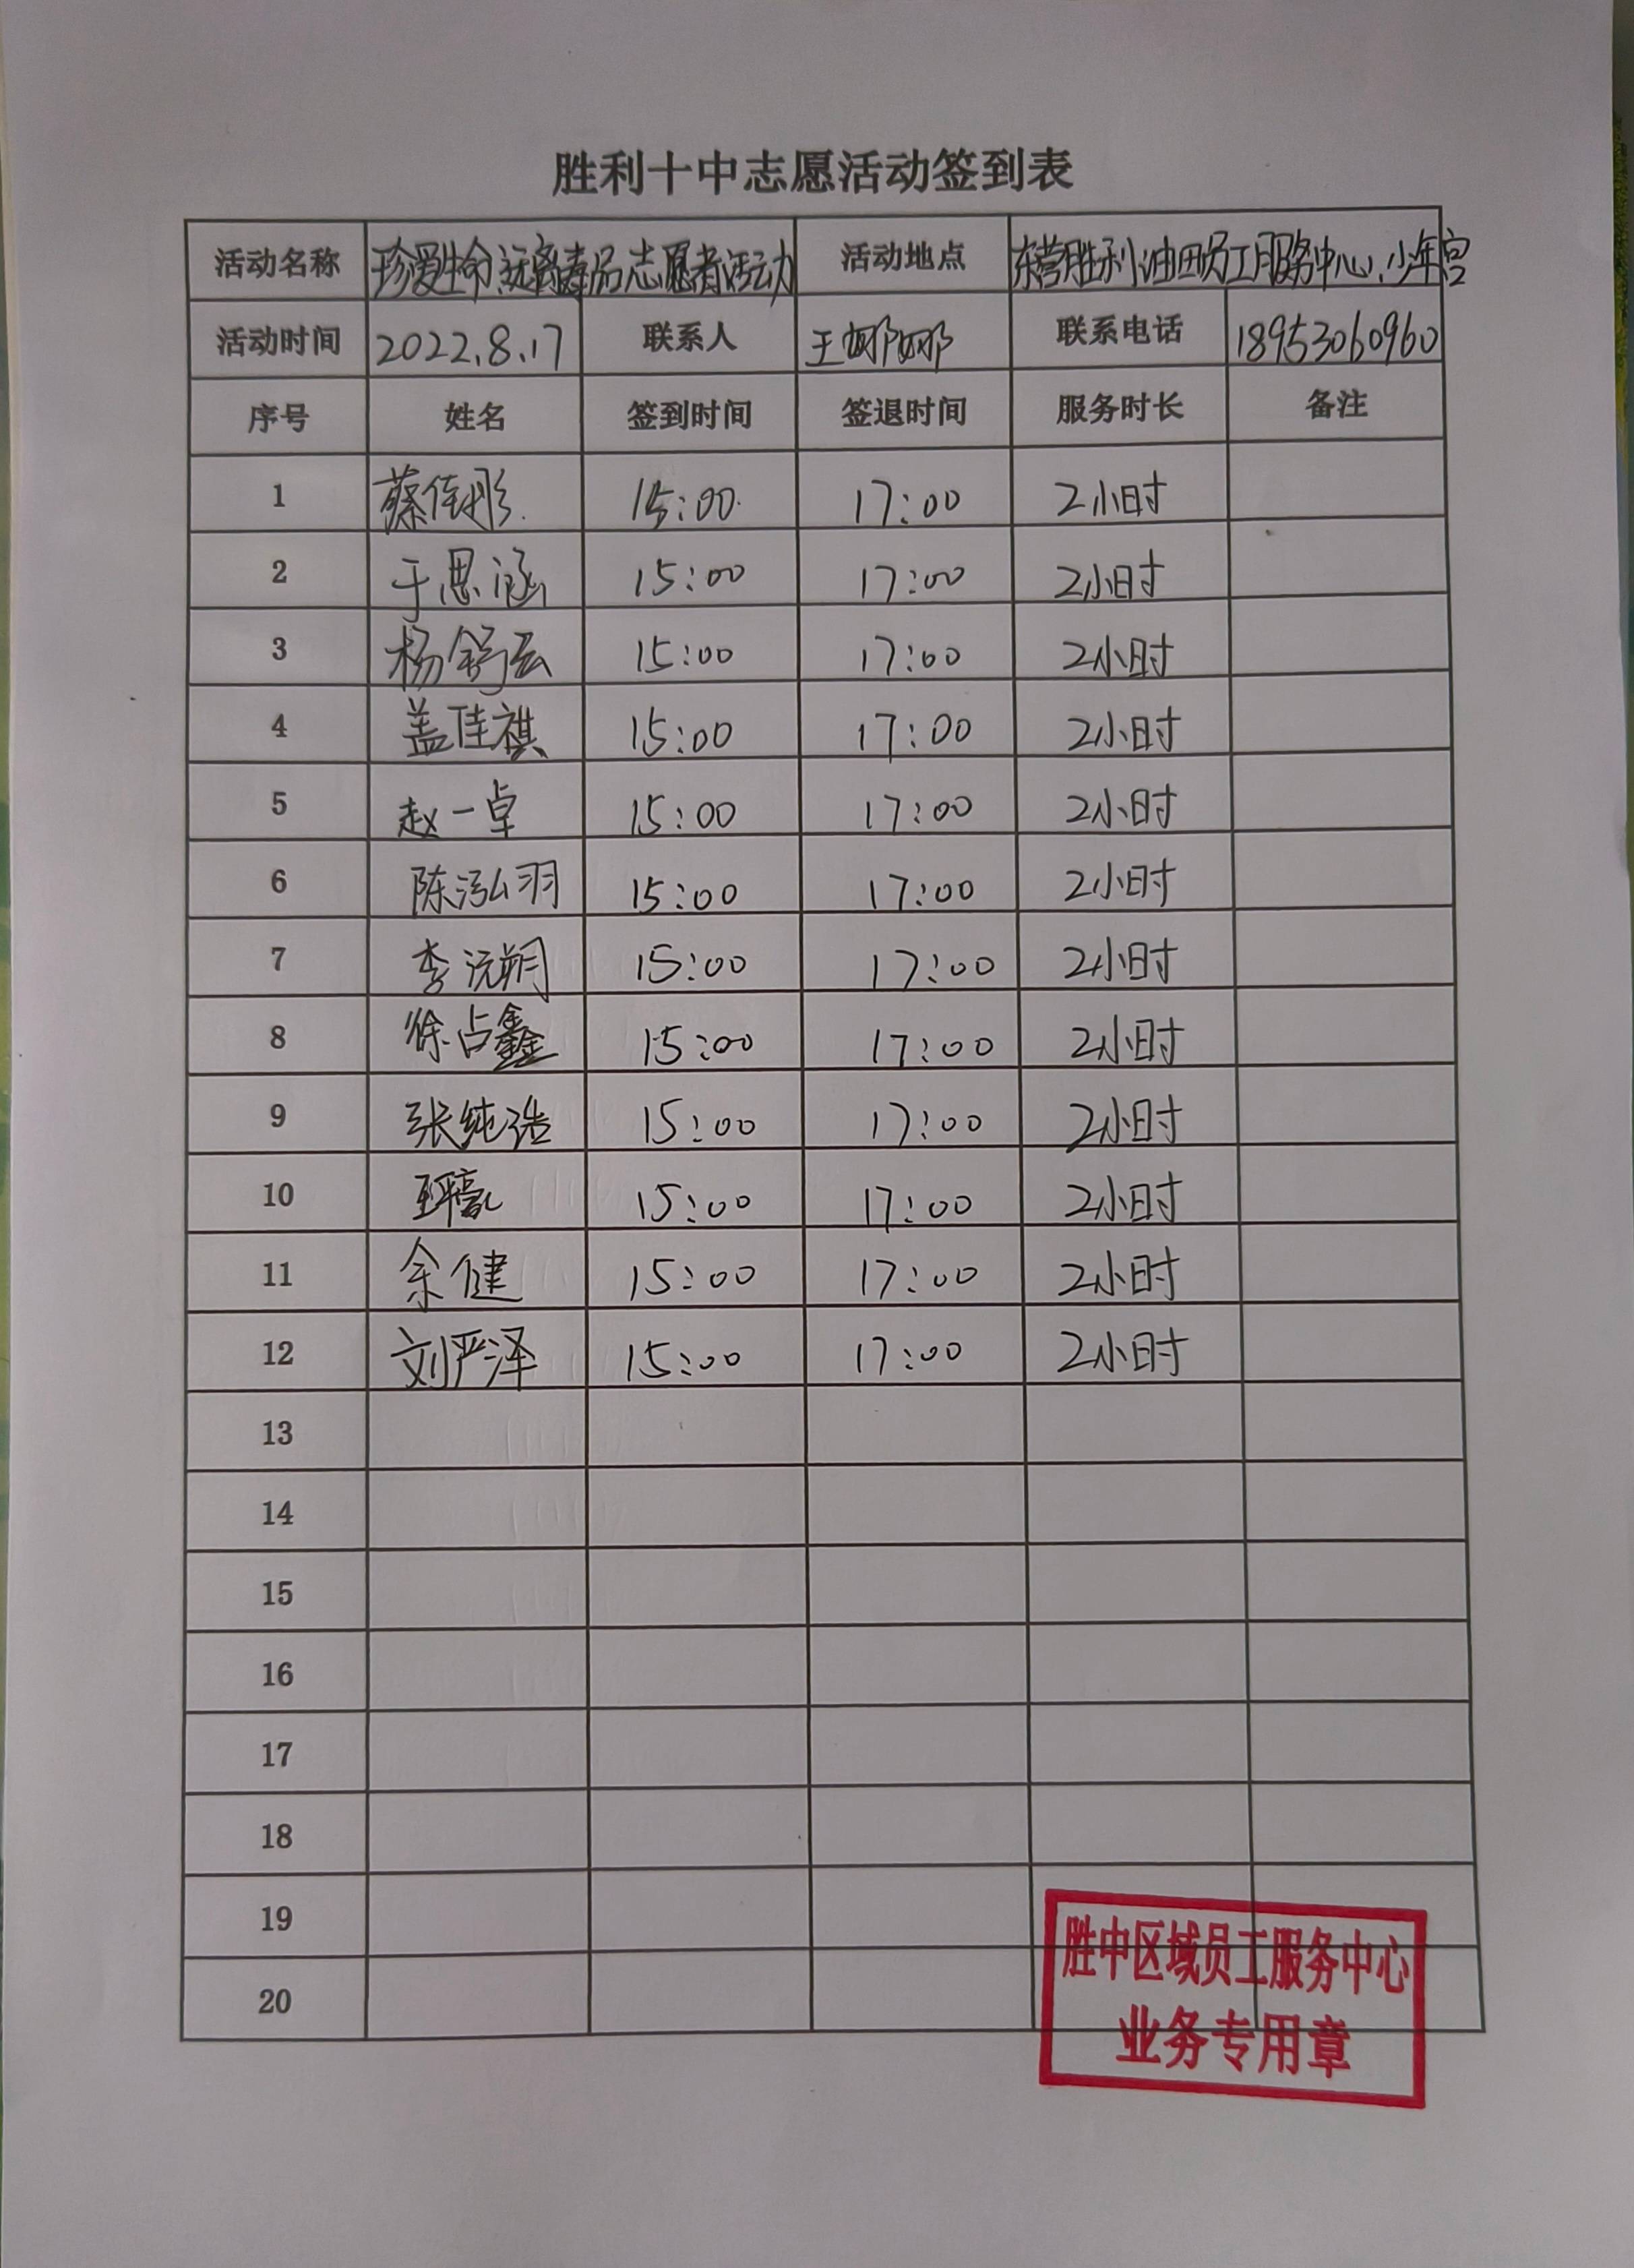 胜利十中志愿活动签到表
活动名称 珍爱生命,远离毒品志愿者活动 活动地点 东营胜利油田员工服务中心、少年宫
活动时间 2022.8.17 联系人 王娜娜 联系电话 18953060960
序号 姓名 签到时间 签退时间 服务时长 备注
1 蔡佳彤 15:00 17:00 2小时
2 于思涵 15:00 17:00 2小时
3 杨舒云 15:00 17:00 2小时
4 盖佳祺 15:00 17:00 2小时
5 赵一卓 15:00 17:00 2小时
6 陈泓羽 15:00 17:00 2小时
7 李沅朔 15:00 17:00 2小时
8 徐占鑫 15:00 17:00 2小时
9 张纯浩 15:00 17:00 2小时
10 15:00 17:00 2小时
11 余健 15:00 17:00 2小时
12 刘严泽 15:00 17:00 2小时
13
14
15
16
17
18
19
20
胜中区域员工服务中心
业务专用章